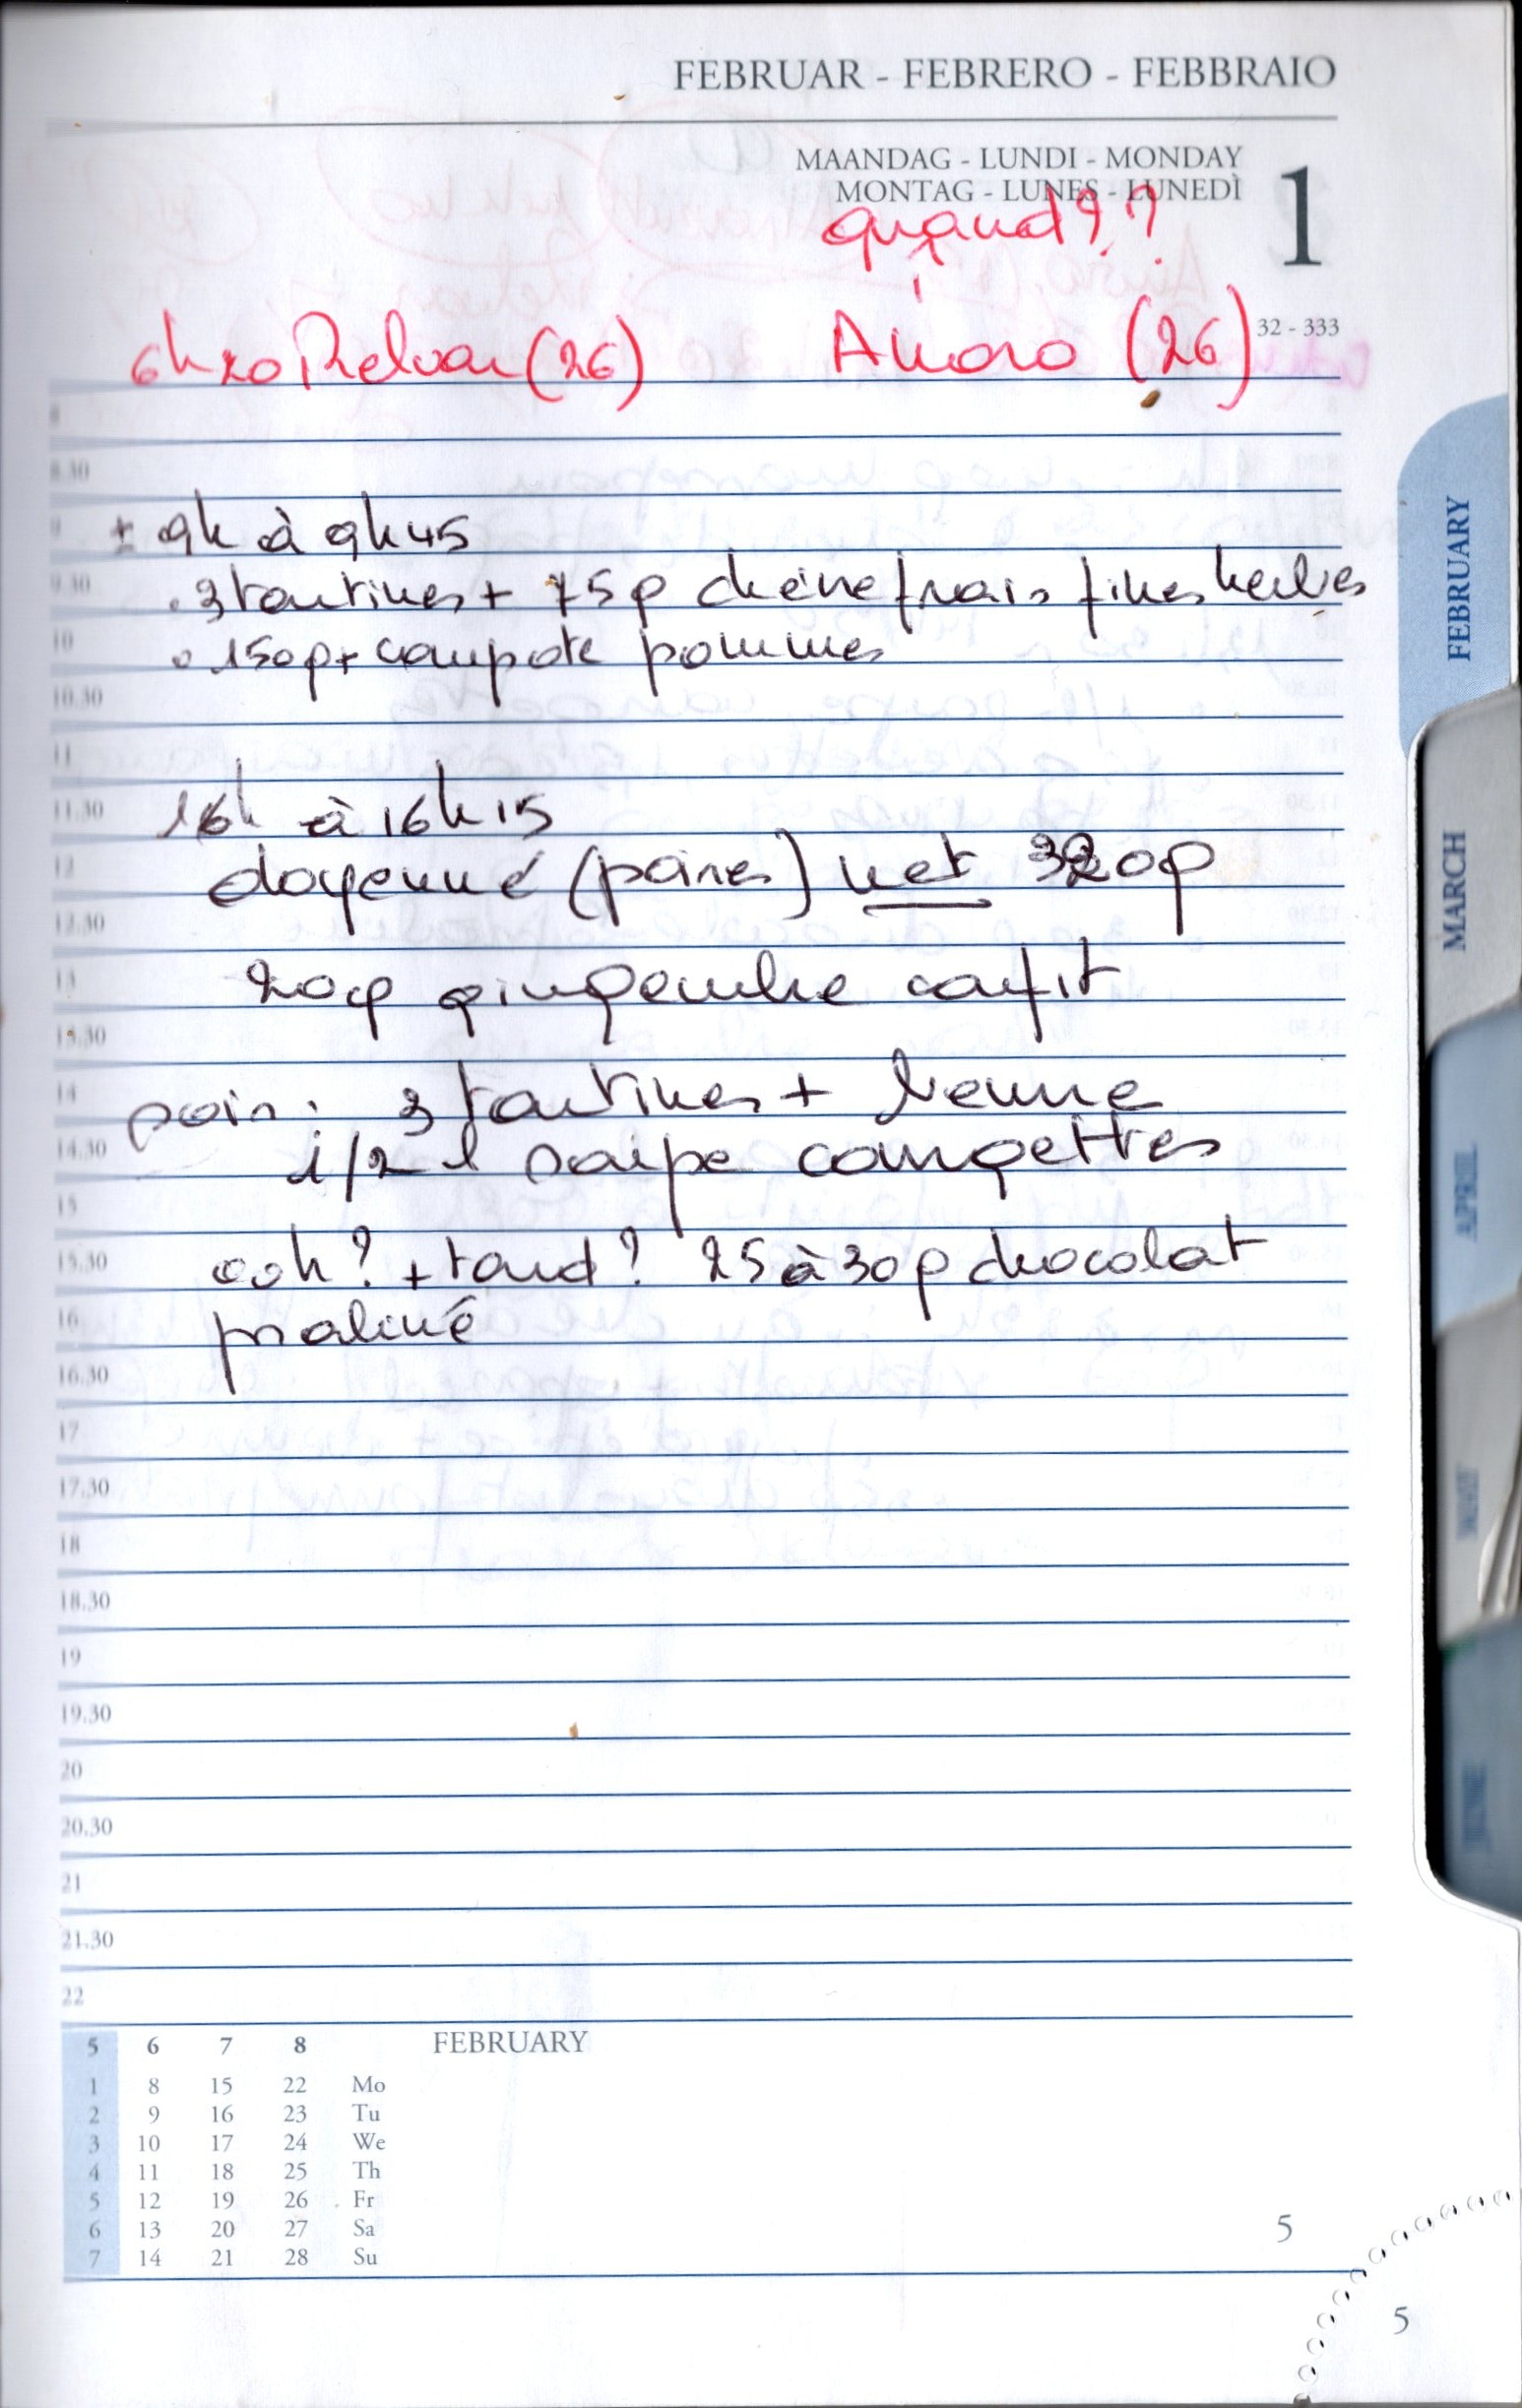 FEBRUAR - FEBRERO - FEBBRAIO
MAANDAG - LUNDI - MONDAY
MONTAG - LUNES - LUNEDÌ
1
quand??
6h20 Relvar (26) Airoro (26)
32 - 333
8
8.30
± 9h à 9h45
9
. 3 tartines + 75g chèvre frais fines herbes
9.30
. 150g + compote pommes
10
10.30
11
16h à 16h15
11.30
doyenné (poires) net 320g
12
12.30
20g gingembre confit
13
13.30
soir : 3 tartines + beurre
14
1/2 l soupe courgettes
14.30
15
00h ? + tard ? 25 à 30g chocolat
15.30
praliné
16
16.30
17
17.30
18
18.30
19
19.30
20
20.30
21
21.30
22
5 6 7 8 FEBRUARY
1 8 15 22 Mo
2 9 16 23 Tu
3 10 17 24 We
4 11 18 25 Th
5 12 19 26 Fr
6 13 20 27 Sa
7 14 21 28 Su
5
5
FEBRUARY
MARCH
APRIL
MAY
JUNE